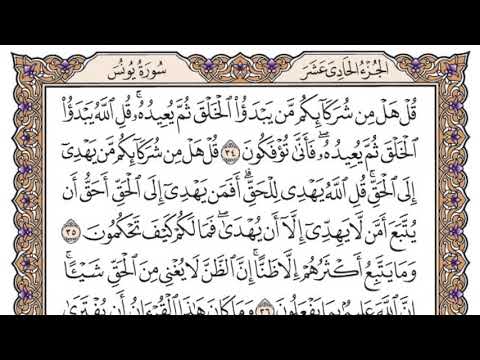 الجُزْءُ الحَادِي عَشَرَ
سُورَةُ يُونُسَ
قُلْ هَلْ مِن شُرَكَآئِكُم مَّن يَبْدَؤُا۟ ٱلْخَلْقَ ثُمَّ يُعِيدُهُۥ ۚ قُلِ ٱللَّهُ يَبْدَؤُا۟
ٱلْخَلْقَ ثُمَّ يُعِيدُهُۥ ۖ فَأَنَّىٰ تُؤْفَكُونَ ٣٤ قُلْ هَلْ مِن شُرَكَآئِكُم مَّن يَهْدِىٓ
إِلَى ٱلْحَقِّ ۚ قُلِ ٱللَّهُ يَهْدِى لِلْحَقِّ ۗ أَفَمَن يَهْدِىٓ إِلَى ٱلْحَقِّ أَحَقُّ أَن
يُتَّبَعَ أَمَّن لَّا يَهِدِّىٓ إِلَّآ أَن يُهْدَىٰ ۖ فَمَا لَكُمْ كَيْفَ تَحْكُمُونَ ٣٥
وَمَا يَتَّبِعُ أَكْثَرُهُمْ إِلَّا ظَنًّا ۚ إِنَّ ٱلظَّنَّ لَا يُغْنِى مِنَ ٱلْحَقِّ شَيْـًٔا ۚ
إِنَّ ٱللَّهَ عَلِيمٌۢ بِمَا يَفْعَلُونَ ٣٦ وَمَا كَانَ هَـٰذَا ٱلْقُرْءَانُ أَن يُفْتَرَىٰ